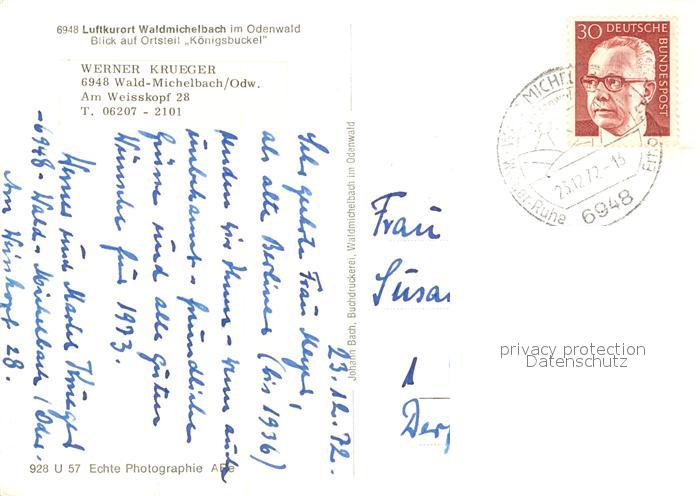 6948 Luftkurort Waldmichelbach im Odenwald
Blick auf Ortsteil „Königsbuckel"
WERNER KRUEGER
6948 Wald-Michelbach/Odw.
Am Weisskopf 28
T. 06207 - 2101
23.12.72.
Sehr geehrte Frau Meyer,
als alte Berliner (bis 1936)
senden wir Ihnen - wenn auch
unbekannt - freundliche
Grüsse und alle guten
Wünsche für 1973.
Werner und Krueger
-6948- Wald-Michelbach/Odw.
Am Weisskopf 28.
928 U 57 Echte Photographie
Johann Bach, Buchdruckerei, Waldmichelbach im Odenwald
30 DEUTSCHE
BUNDESPOST
MICHEL
23.12.72-15
6948
Ruhe
Frau
Susan
1
Ber
privacy protection
Datenschutz